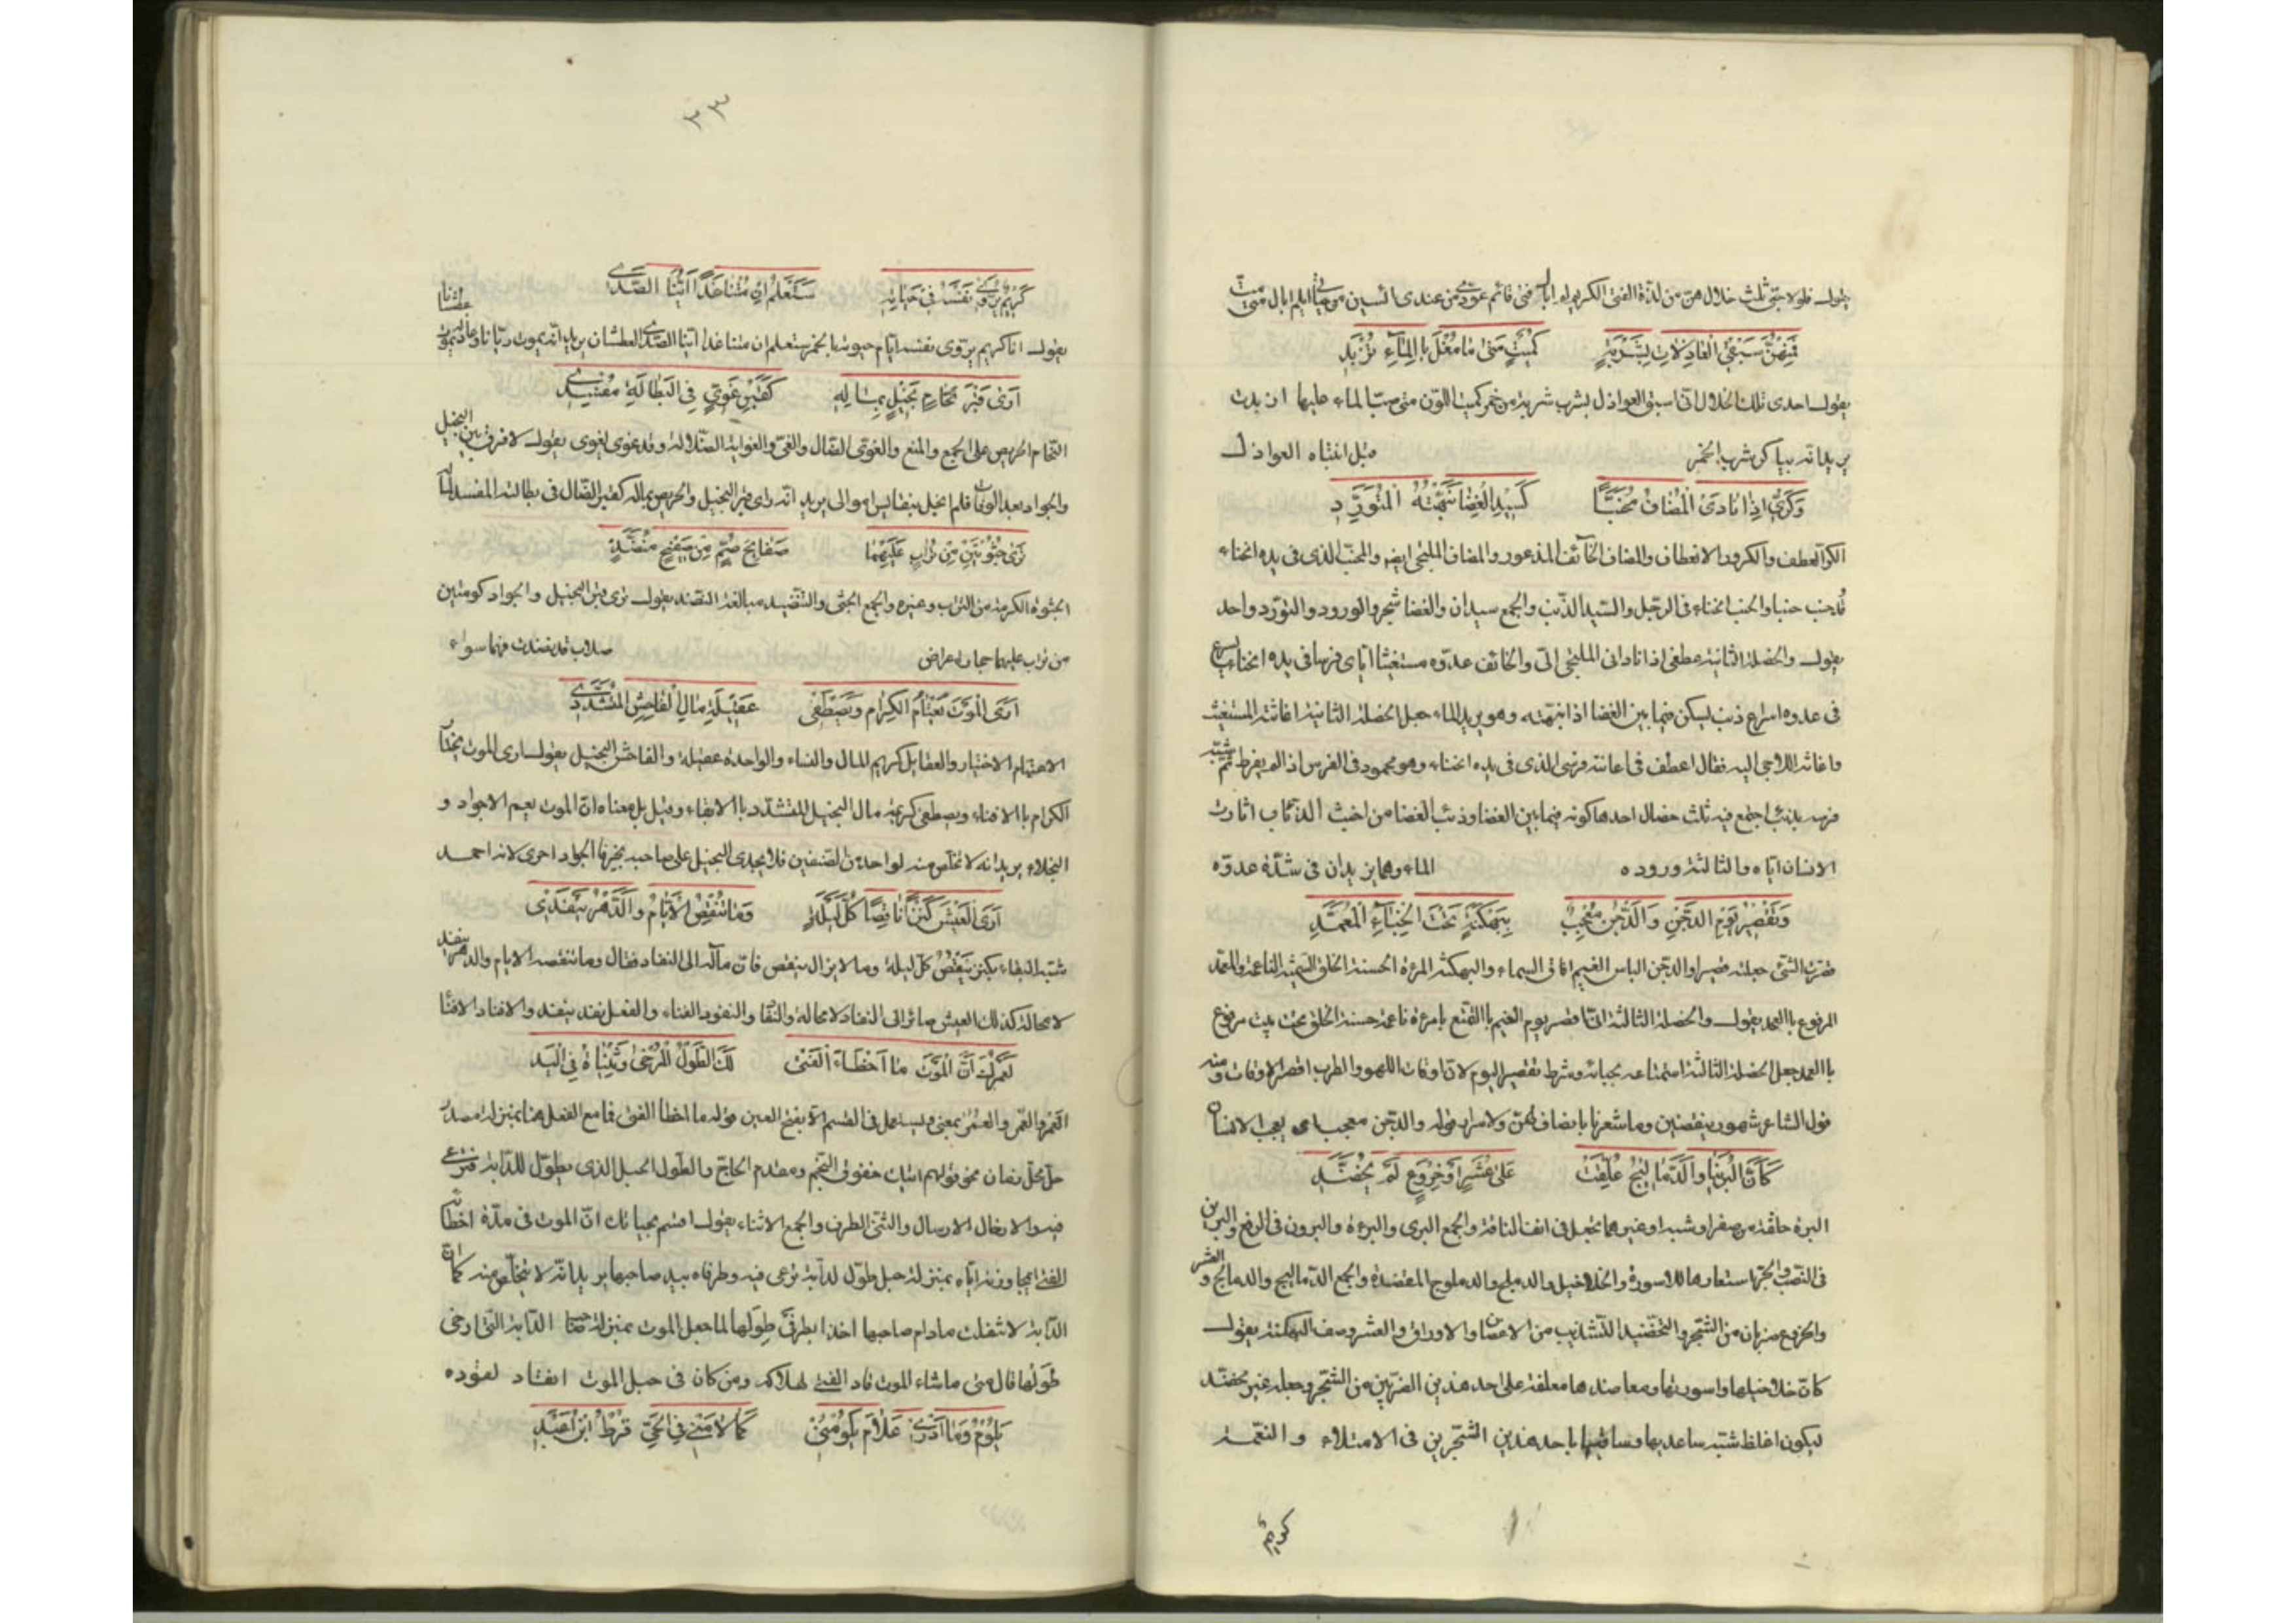 يقول فلولا حبّي ثلث خلال هنّ من لذّة الفتى الكريم لم ابال متى قام عوّدي من عندي آئسين من حياتي اي لم ابال متى متّ
فَمِنْهُنَّ سَبْقِي الْعَاذِلاتِ بِشَرْبَةٍ كُمَيْتٍ مَتى مَا تُعْلَ بِالْمَآءِ تُزْبِدِ
يقول احدى تلك الخلال انّي اسبق العواذل بشرب شربة من خمر كميت اللّون متى صبّ الماء عليها ازبدت
يريد انّه يباكر شرب الخمر قبل انتباه العواذل
وَكَرِّي اِذَا نَادَى الْمُضَافُ مُحَنَّبًا كَسِيدِ الْغَضَا نَبَّهْتَهُ الْمُتَوَرِّدِ
الكرّ العطف والكرور الانعطاف والمضاف الخآئف المذعور والمضاف الملجئ ايضا والمحنّب الذي في يده انحناء
قد حنب حنبا والحنب انحناء في الرجل والسّيد الذّئب والجمع سيدان والغضا شجر والورود والتورّد واحد
يقول والخصلة الثانية عطفي اذا ناداني الملجئ اليّ والخائف عدوّه مستغيثا ايّاي فرسا في يده انحناء يسرع
في عدوه اسراع ذئب يسكن فيما بين الغضا اذا نبّهته وهو يريد الماء جعل الخصلة الثانية اغاثته المستغيث
واغاثته اللاجي اليه فقال اعطف في اعانته فرسي الذي في يده انحناء وهو محمود في الفرس اذا لم يفرط ثمّ شبّه
فرسه بذئب اجتمع فيه ثلث خصال احدها كونه فيما بين الغضا وذئب الغضا من اخبث الذئاب اثارة
الانسان ايّاه والثالثة وروده الماء وهما يزيدان في شدّة عدوه
وَتَقْصِيرُ يَوْمِ الدَّجْنِ وَالدَّجْنُ مُعْجِبٌ بِبَهْكَنَةٍ تَحْتَ الْخِبَاءِ الْمُعَمَّدِ
قصرت الشّيء جعلته قصيرا والدّجن الباس الغيم افاق السماء والبهكنة المرءة الحسنة الخلق السمينة الناعمة والمعمّد
المرفوع بالعمد يقول والخصلة الثالثة انّي اقصر يوم الغيم بالتمتّع بامرءة ناعمة حسنة الخلق تحت بيت مرفوع
بالعمد جعل الخصلة الثالثة استمتاعه بحبائبه وشرط تقصير اليوم لانّ اوقات اللهو والطرب اقصر الاوقات ومنه
قول الشاعر شهور ينقضين وما شعرنا بانصاف لهنّ ولا سرار قوله والدّجن معجب اي يعجب الانسان
كَاَنَّ الْبُرِينَ وَالدَّمَالِيجَ عُلِّقَتْ عَلى عُشَرٍ اَوْ خِرْوَعٍ لَمْ يُخَضَّدِ
البرة حلقة من صفر او شبه او غيرهما تجعل في انف الناقة والجمع البرى والبرات والبرون في الرفع والبرين
في النّصب والجرّ استعارها للاسورة والخلاخيل والدملج والدملوج المعضدة والجمع الدّماليج والدمالج والعشر
والخروع ضربان من الشّجر والتّخضيد التّشذيب من الاغصان والاوراق والعشر وصف البهكنة يقول
كانّ خلاخيلها واسورتها ومعاضدها معلقة على احد هذين الضربين من الشّجر وجعله غير مخضّد
ليكون اغلظ شبّه ساعديها وساقيها باحد هذين الشّجرين في الامتلاء والنّعمة
كريم
٣٣
كَرِيْمٌ يُرَوِّي نَفْسَهُ فِي حَيَاتِهِ سَتَعْلَمُ اِنْ مُتْنَا غَدًا اَيُّنَا الصَّدِي
يقول انا كريم يروّي نفسه ايّام حيوته بالخمر ستعلم ان متنا غدا ايّنا الصّدي العطشان يريد انّه يموت ريّانا وعاذله يموت عطشانا
اَرَى قَبْرَ نَحَّامٍ بَخِيْلٍ بِمَالِهِ كَقَبْرِ غَوِيٍّ فِي الْبَطَالَةِ مُفْسِدِ
النّحّام الحريص على الجمع والمنع والغويّ الضّال والغيّ والغواية الضّلالة وقد غوى يغوى يقول لا فرق بين البخيل
والجواد بعد الوفات فلم ابخل بنفايس اموالي يريد انّه راى قبر البخيل والحريص بماله كقبر الضّال في بطالته المفسد لماله
تَرى جُثْوَتَيْنِ مِنْ تُرَابٍ عَلَيْهِمَا صَفَائِحُ صُمٌّ مِنْ صَفِيْحٍ مُنَضَّدِ
الجثوة الكومة من التراب وغيره والجمع الجثى والتّنضيد مبالغة النضد يقول ترى قبري البخيل والجواد كومتين
من تراب عليهما حجار اعراض صلاب قد نضدت فهما سواء
اَرَى الْمَوْتَ يَعْتَامُ الْكِرَامَ وَيَصْطَفِي عَقِيْلَةَ مَالِ الْفَاحِشِ الْمُتَشَدِّدِ
الاعتيام الاختيار والعقايل كرايم المال والنساء والواحدة عقيلة والفاحش البخيل يقول ارى الموت يختار
الكرام بالافناء ويصطفي كريمة مال البخيل المتشدّد بالابقاء وقيل بل معناه انّ الموت يعم الاجواد و
البخلاء يريد انه لا تخلّص منه لواحد من الصّنفين فلا يجدى البخل على صاحبه بخير فالجواد احرى لانه احمد
اَرَى الْعَيْشَ كَنْزًا نَاقِصًا كُلَّ لَيْلَةٍ وَمَا تَنْقُصُ الْاَيَّامُ وَالدَّهْرُ يَنْفَدِ
شبّه البقاء بكنز يَنْقُصُ كلّ ليلة وما لا يزال ينقص فانّ مآله الى النفاد فقال وما تنقصه الايام والدهر ينفد
لا محالة كذلك العيش صائر الى النفاد لا محالة والنفاد والنفود الفناء والفعل نفد ينفد والانفاد الافناء
لَعَمْرُكَ اَنَّ الْمَوْتَ مَا اَخْطَاءَ الْفَتى لَكَا الطِّوَلِ الْمُرْخَى وَثِنْيَاهُ فِي الْيَدِ
العَمر والعُمر والعُمُر بمعنى ولا يستعمل في القسم الا بفتح العين قوله ما اخطأ الفتى فما مع الفعل هنا بمنزلة مصدر
حلّ محلّ زمان نحو قولهم اتيك خفوق النّجم ومقدم الحاج والطول الحبل الذي يطوّل للدّابة فترعى
فيه والارخاء الارسال والثني الطرف والجمع الاثناء يقول اقسم بحياتك انّ الموت في مدّة اخطائه
الفتى اي مجاوزته ايّاه بمنزلة حبل طوّل لدابة ترعى فيه وطرفاه بيد صاحبها يريد انّه لا يتخلّص منه كما انّ
الدّابة لا تفلت ما دام صاحبها اخذا بطرفَيْ طِوَلِها لما جعل الموت بمنزلة صاحب الدّابة الّتي ارخى
طِوَلها قال متى ما شاء الموت قاد الفتى لهلاكه ومن كان في حبل الموت انقاد لقوده
يَلُوْمُ وَمَا اَدْرِي عَلَامَ يَلُوْمُنِي كَمَا لَامَنِي فِي الْحَيِّ قُرْطُ ابْنُ اَعْبَدِ